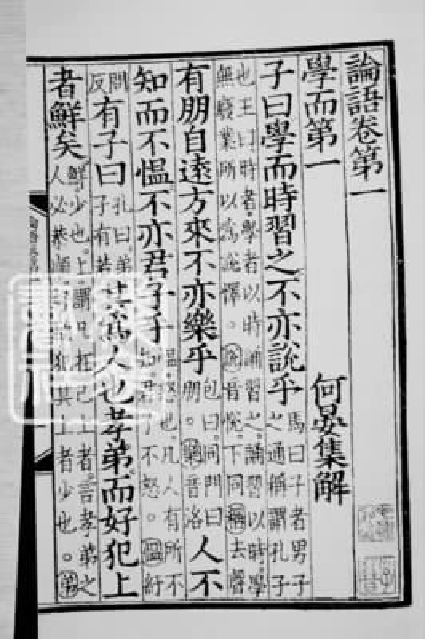 論語卷第一
學而第一
何晏集解
子曰學而時習之不亦說乎馬曰子者男子之通稱謂孔子
也王曰時者學者以時誦習之誦習以時學無廢業所以為說懌。音悅下同稱去聲
有朋自遠方來不亦樂乎包曰同門曰朋。樂音洛人不
知而不慍不亦君子乎慍怒也凡人有所不知君子不怒。慍紆
問反有子曰孔曰弟子有若其為人也孝弟而好犯上
者鮮矣鮮少也上謂凡在己上者言孝弟之人必恭順好犯其上者少也。弟